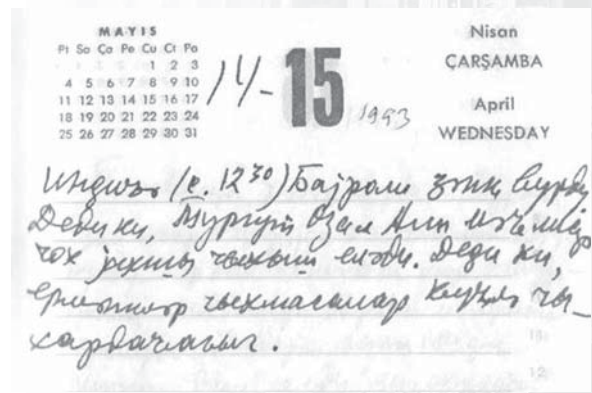 MAYIS
Pt Sa Ça Pe Cu Ct Pa
1 2 3
4 5 6 7 8 9 10
11 12 13 14 15 16 17
18 19 20 21 22 23 24
25 26 27 28 29 30 31
14-
15
1993
Nisan
ÇARŞAMBA
April
WEDNESDAY
(с. 12 30) Бајрам зәнҝ вурду
Деди ки, Тургут Өзал Али Мәҹлисдә
чох јахшы чыхыш еләди. Деди ки,
ермәниләр чыхмасалар ҝүҹлә чы-
хардаҹағыг.
12